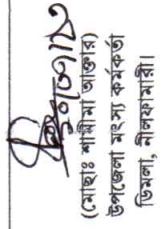 (মোছাঃ শামীমা আক্তার)
উপজেলা মৎস্য কর্মকর্তা
ডিমলা, নীলফামারী।